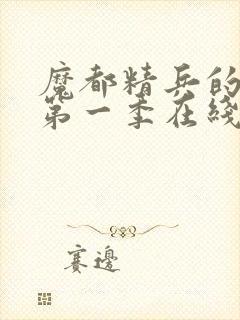 魔都精兵的
第一季在线
赛边